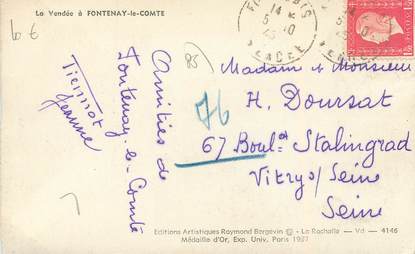 La Vendée à FONTENAY-le-COMTE
10 €
85
Amitiés de
Fontenay-le-Comte
Jeanne
Madame et Monsieur
H. Doursat
76
67 Boulᵈ Stalingrad
Vitry s/ Seine
Seine
14 H
5 10
VENDEE
Editions Artistiques Raymond Bergevin - La Rochelle - Vd - 4146
Médaille d'Or, Exp. Univ. Paris 1937